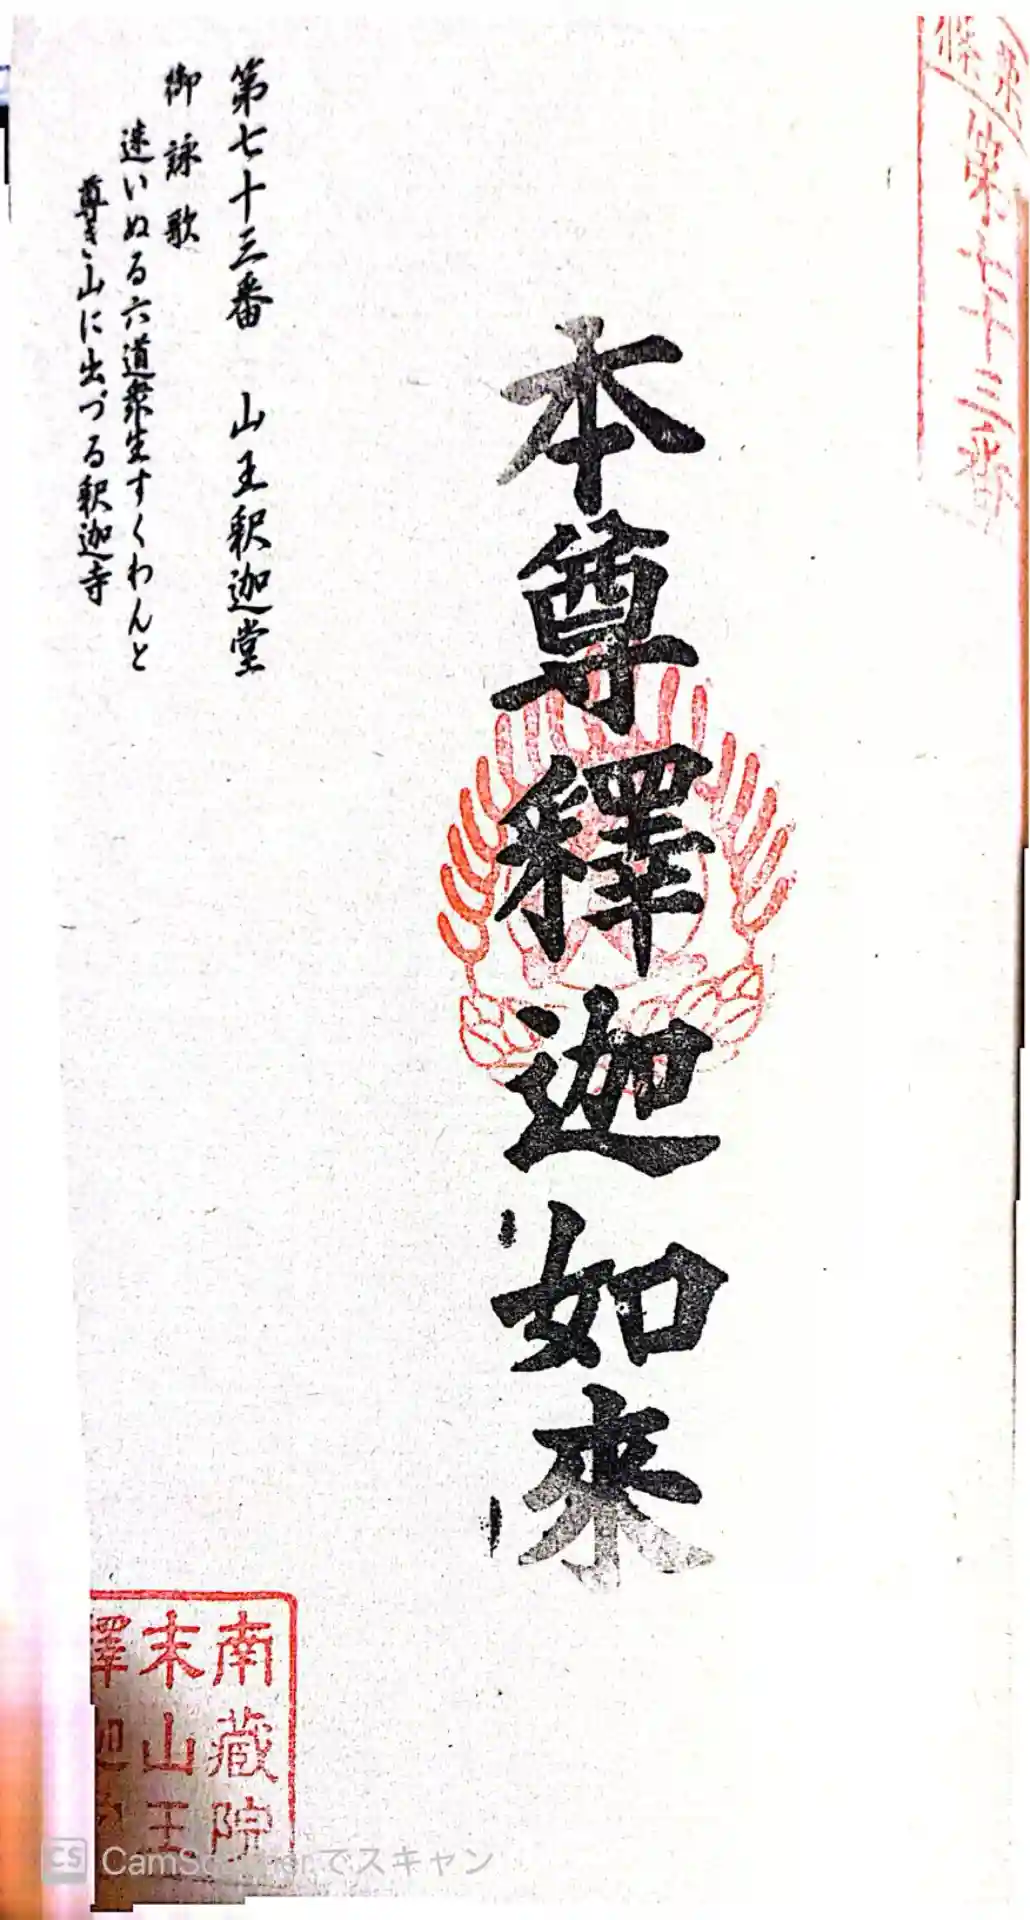 篠栗
第七十三番
本尊釋迦如來
第七十三番　山王釈迦堂
御詠歌
迷いぬる六道衆生すくわんと
尊き山に出づる釈迦寺
南藏院
末山王
釋迦
CS CamScannerでスキャン